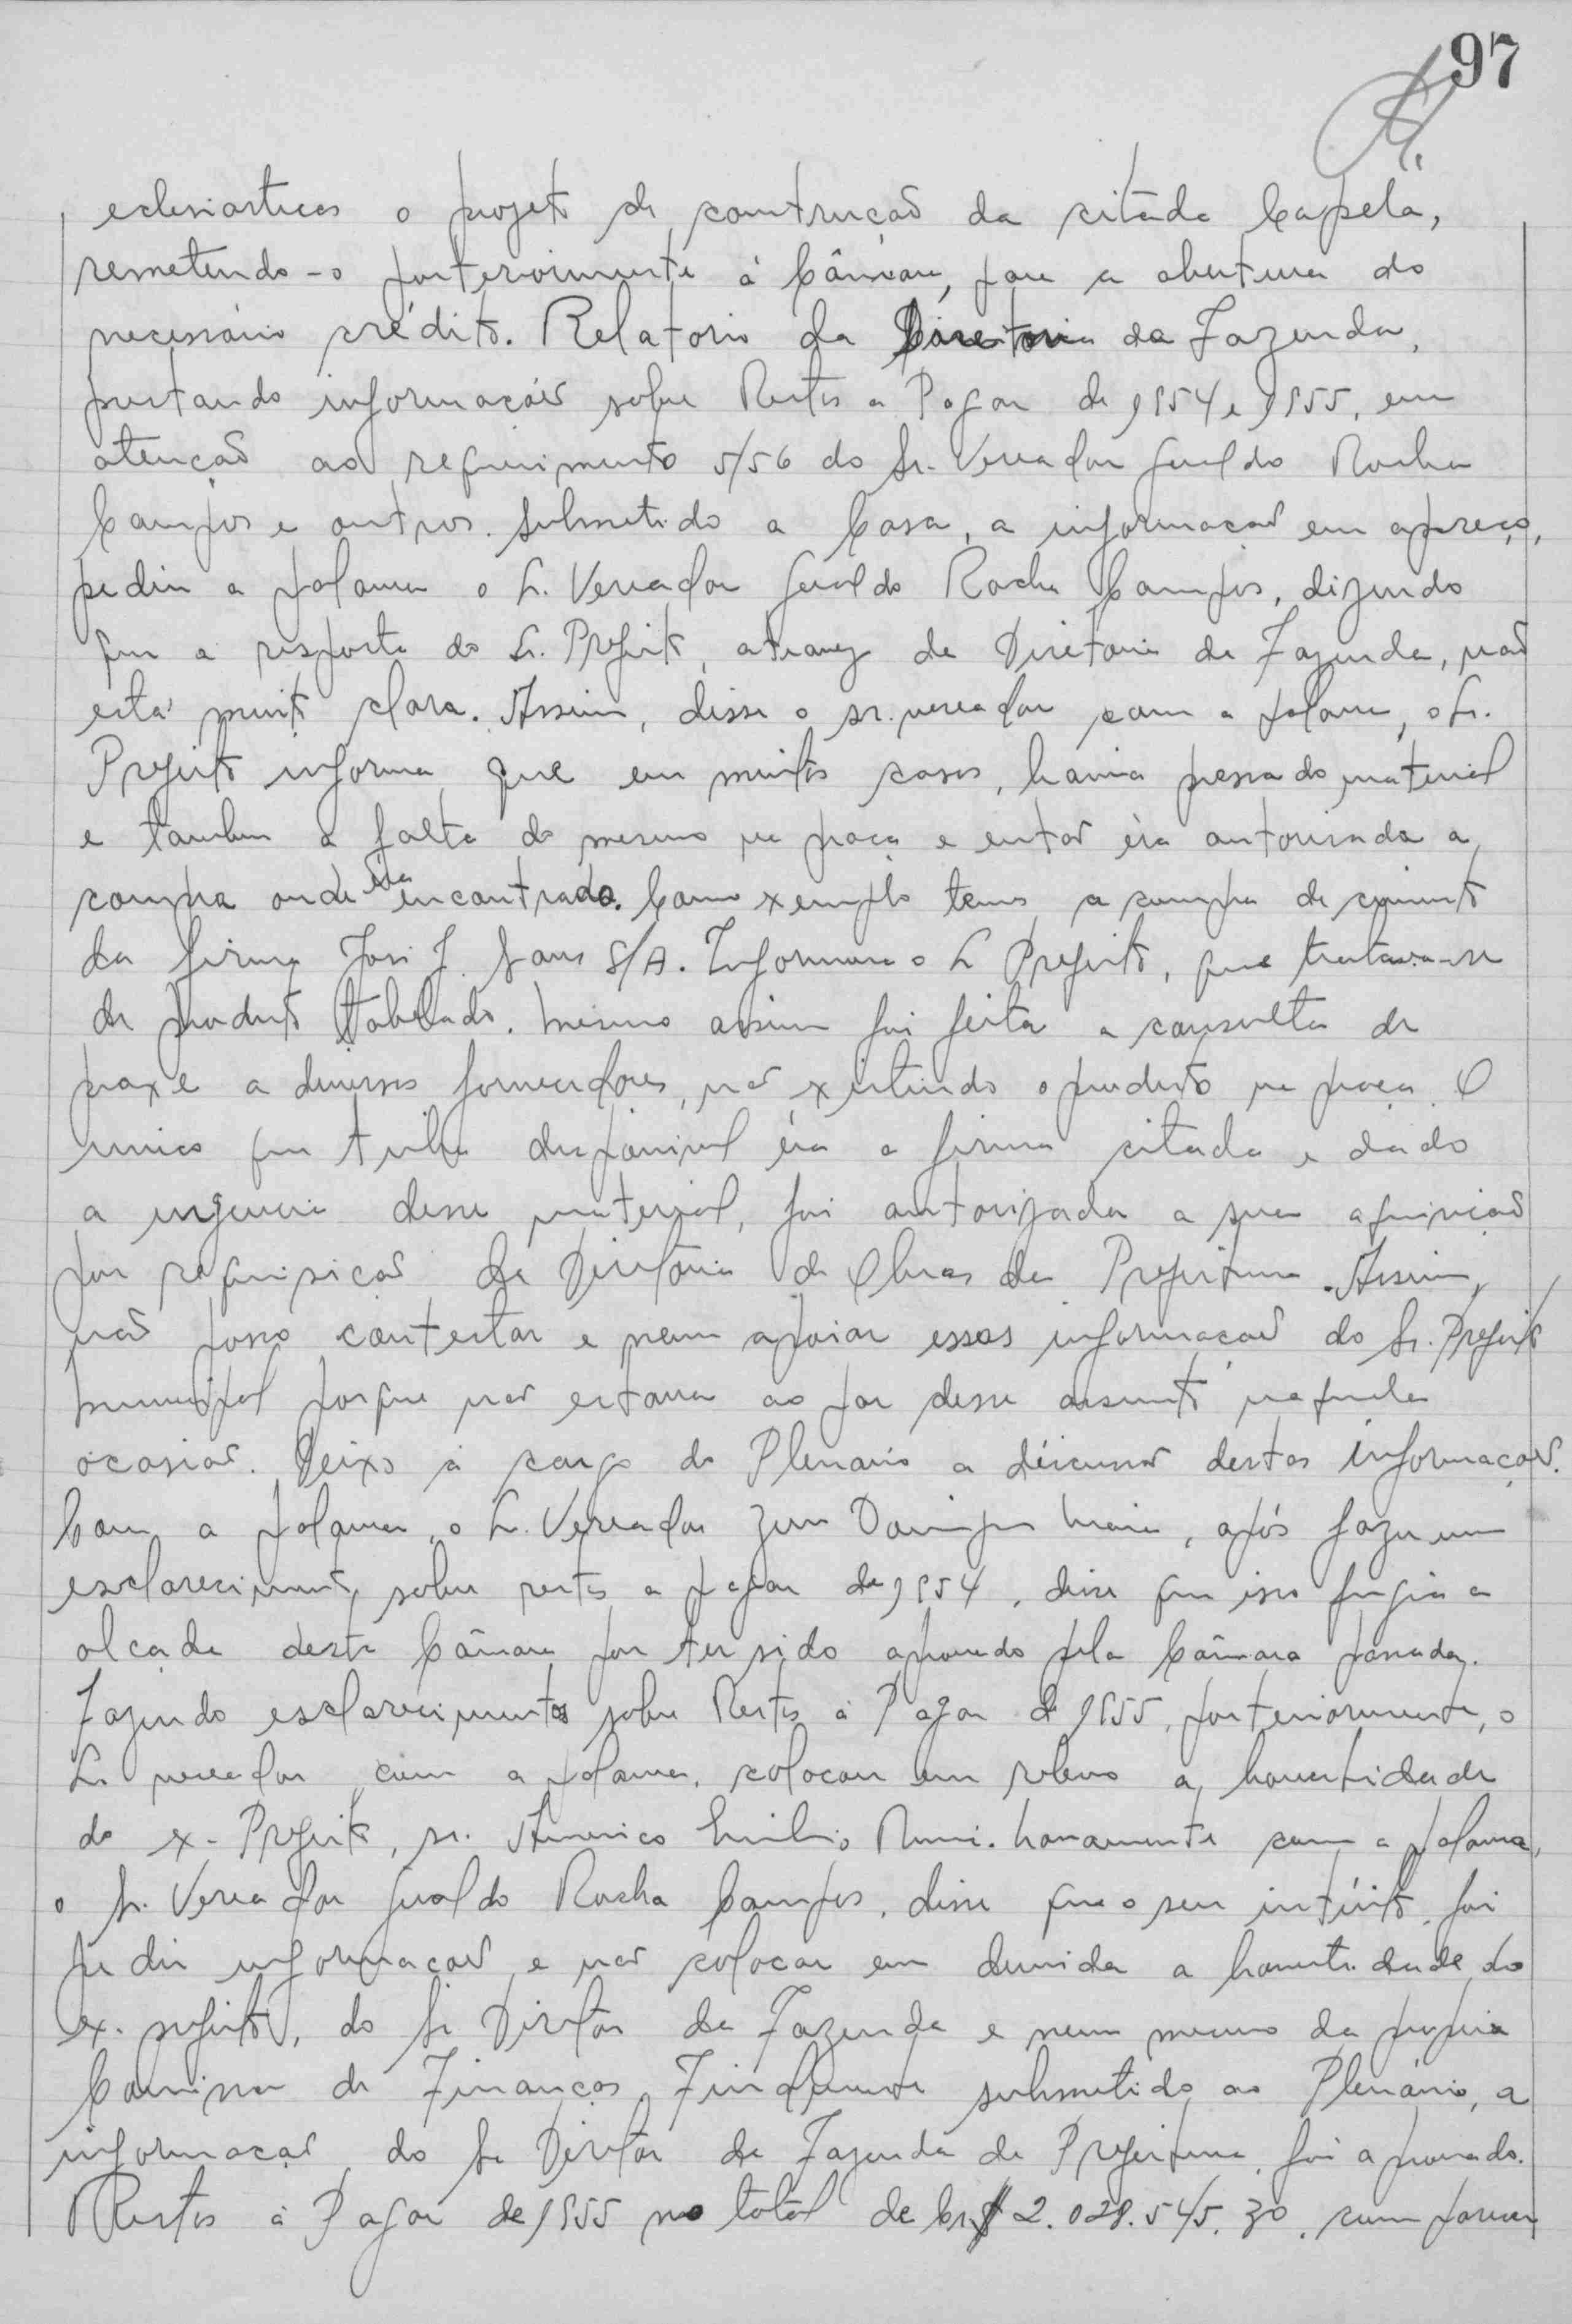 97
eclesiasticas o projeto de construção da citada Capela,
remetendo-o posteriormente á Câmara, para a abertura do
necessário crédito. Relatorio da Diretoria da Fazenda,
prestando informações sobre Restos a Pagar de 1954 e 1955, em
atenção ao requerimento 5/56 do Sr. Vereador Geraldo Rocha
Campos e outros. Submetido a Casa, a informação em apreço,
pediu a palavra o Sr. Vereador Geraldo Rocha Campos, dizendo
que a resposta do Sr. Prefeito, atravez da Diretoria da Fazenda, não
está muito clara. Assim, disse o sr. vereador com a palavra, o Sr.
Prefeito informa que em muitos casos, havia pressa do material
e tambem a falta do mesmo na praça e então éra autorisada a
compra onde éra encontrado. Como exemplo temos a compra de cimento
da firma José J. Sans S/A. Informava o Sr Prefeito, que tratava-se
de produto tabelado. Mesmo assim foi feita a consulta de
praxe a diversos fornecedores, não existindo o produto na praça. O
unico que tinha disponivel éra a firma citada e dado
a urgencia desse material, foi autorizada a sua aquisição
por requisição da Diretoria de Obras da Prefeitura. Assim,
não posso contestar e nem apoiar essas informações do Sr. Prefeito
Municipal porque não estava ao par desse assunto naquela
ocasião. Deixo á cargo do Plenario a discussão destas informações.
Com a palavra, o Sr. Vereador Domingos Maia, após fazer um
esclarecimento sobre restos a pagar de 1954, disse que isso fugia a
alçada desta Câmara por ter sido aprovado pela Câmara passada.
Fazendo esclarecimentos sobre Restos á Pagar de 1955, posteriormente, o
Sr vereador com a palavra, colocou em relevo a honestidade
do ex-Prefeito, sr. Americo Emilio Romi. Novamente com a palavra,
o Sr. Vereador Geraldo Rocha Campos, disse que o seu intúito foi
pedir informações e não colocar em duvida a honestidade do
ex-prefeito, do Sr Diretor da Fazenda e nem mesmo da propria
Comissão de Finanças. Finalmente submetido ao Plenário, a
informação do Sr Diretor da Fazenda da Prefeitura, foi aprovado.
Restos á Pagar de 1955 no total de Cr$ 2.028.545,30, com parecer